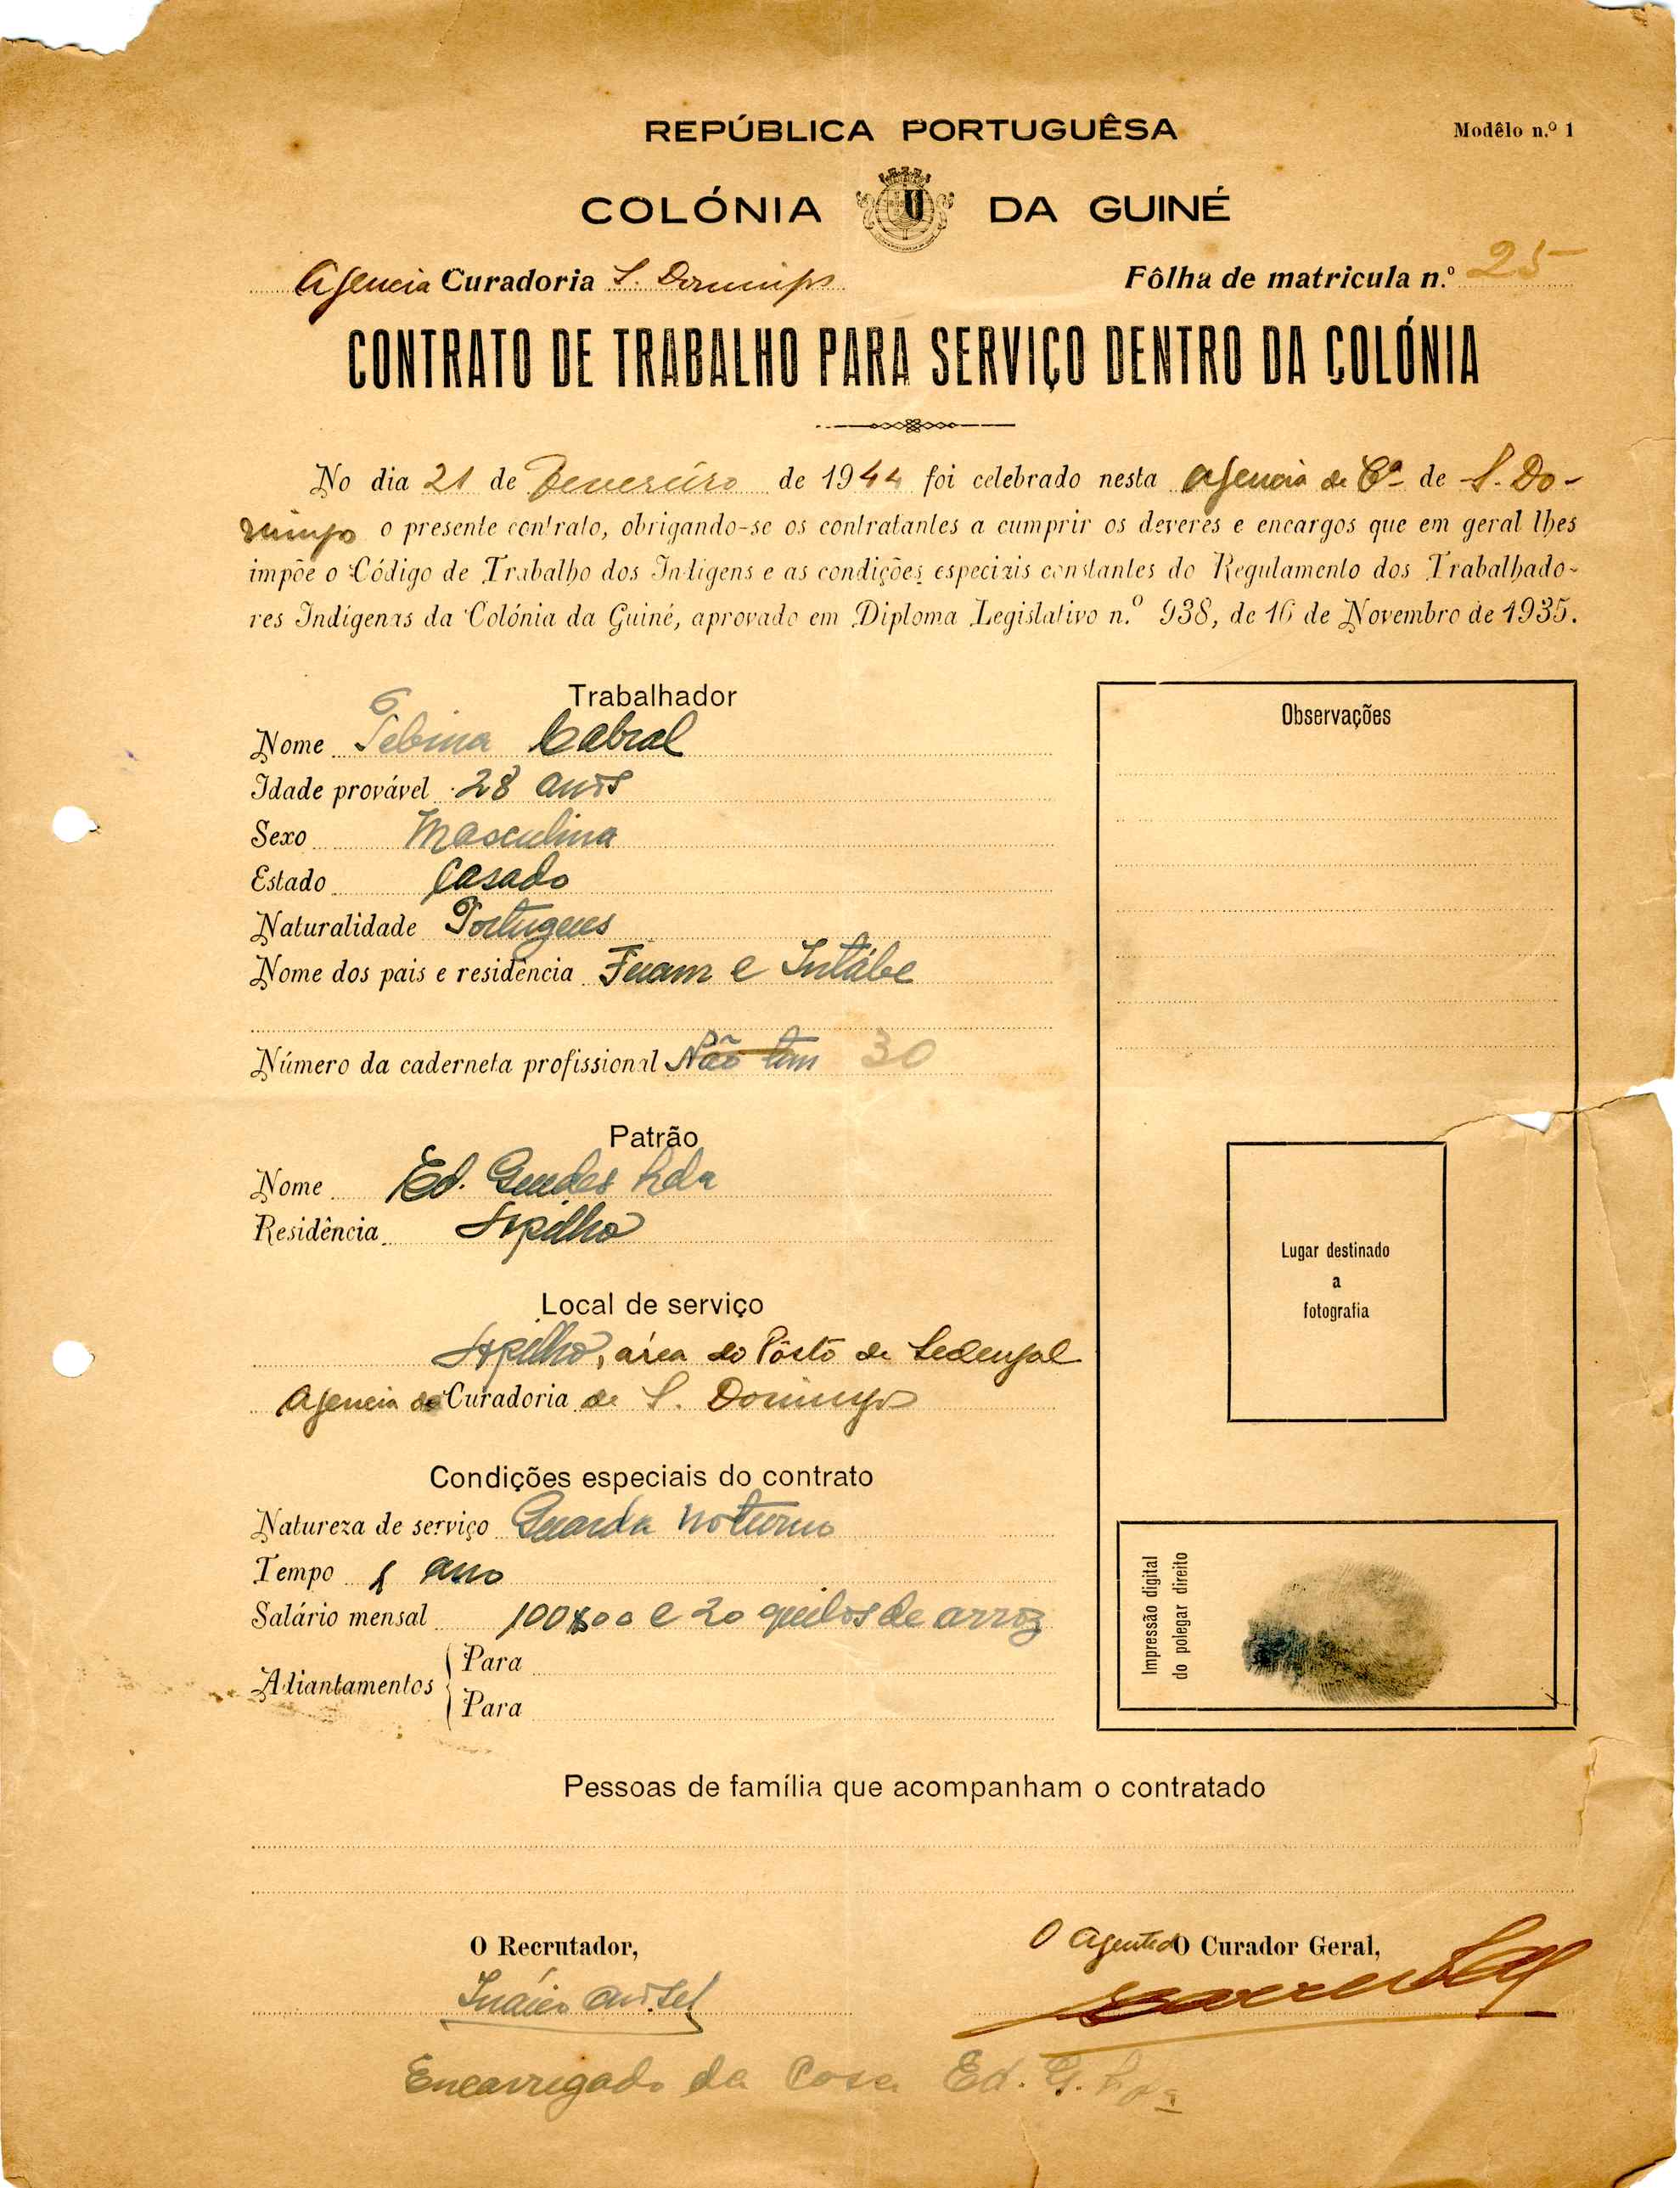 REPÚBLICA PORTUGUÊSA
Modêlo n.º 1
COLÓNIA DA GUINÉ
Agencia Curadoria S. Domingos
Fôlha de matricula n.º 25
CONTRATO DE TRABALHO PARA SERVIÇO DENTRO DA COLÓNIA
No dia 21 de Fevereiro de 1944 foi celebrado nesta Agencia de Cª de S. Do-
mingos o presente contrato, obrigando-se os contratantes a cumprir os deveres e encargos que em geral lhes
impõe o Código de Trabalho dos Indigens e as condições especiais constantes do Regulamento dos Trabalhado-
res Indígenas da Colónia da Guiné, aprovado em Diploma Legislativo n.º 938, de 16 de Novembro de 1935.
Trabalhador
Nome Cabral
Idade provável 28 anos
Sexo Masculina
Estado Casado
Naturalidade Portugues
Nome dos pais e residência e Intábe
Número da caderneta profissional Não tem 30
Patrão
Nome Ed. Guedes Lda
Residência
Local de serviço
área do Pôsto de Sedengal
Agencia de Curadoria de S. Domingos
Condições especiais do contrato
Natureza de serviço Guarda noturno
Tempo 1 ano
Salário mensal 100$00 e 20 quilos de arroz
Adiantamentos
Para
Para
Observações
Lugar destinado
a
fotografia
Impressão digital
do polegar direito
Pessoas de família que acompanham o contratado
O Recrutador,
O Agente do O Curador Geral,
Encarregado da Casa Ed. G. Lda